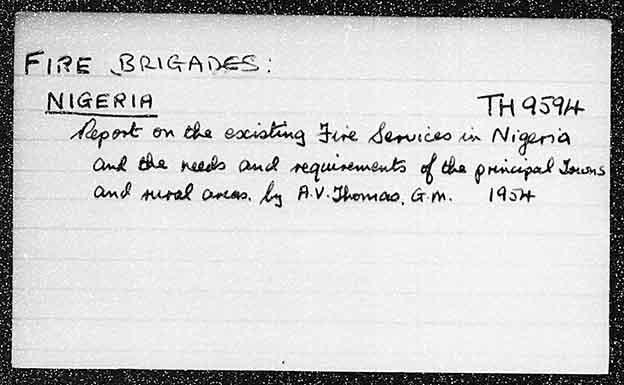 FIRE BRIGADES:
NIGERIA TH9594
Report on the existing Fire Services in Nigeria
and the needs and requirements of the principal Towns
and rural areas. by A.V. Thomas, G.M. 1954